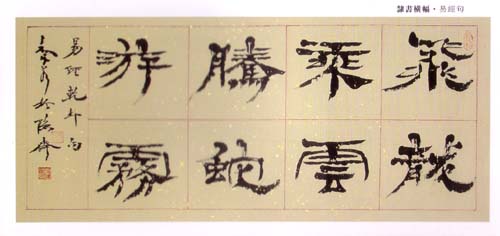 隸書橫幅・易經句
飛龍
乘雲
騰蛇
游霧
易經乾卦句